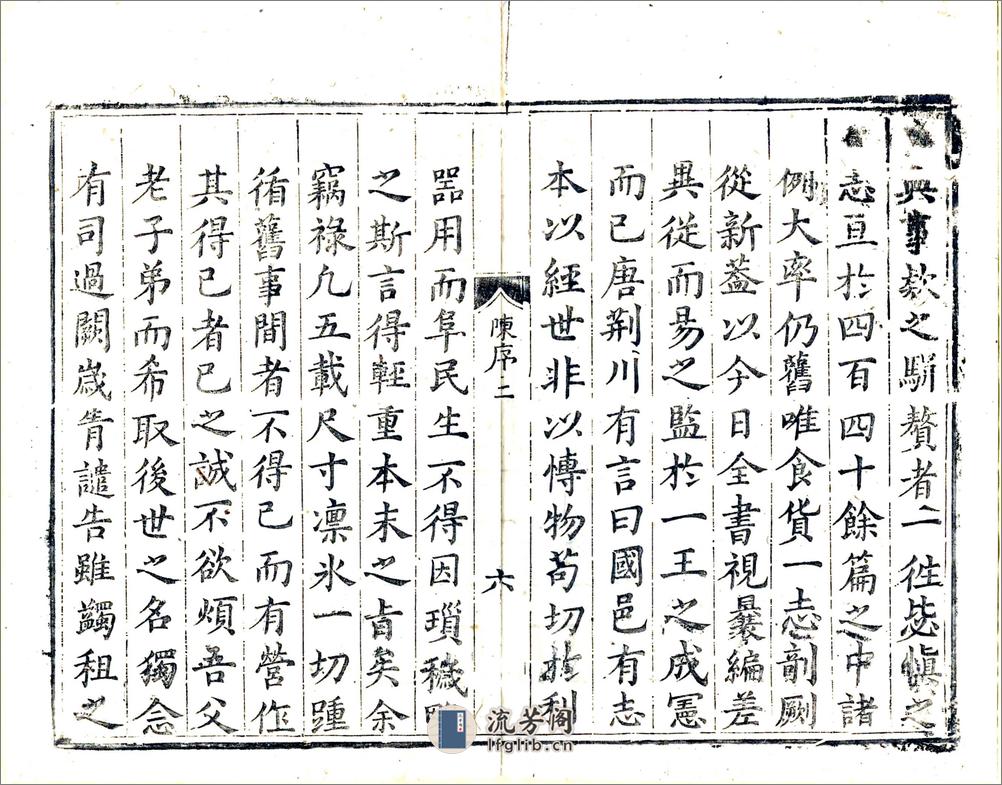 興事款之駢贅者二往毖慎之
志亘於四百四十餘篇之中諸
例大率仍舊唯食貨一志劃厥
從新葢以今日全書視曩編差
異從而易之監於一王之成憲
而已唐荆川有言曰國邑有志
本以經世非以博物苟切於利
陳序二
六
器用而阜民生不得因瑣穢
之斯言得輕重本末之旨矣余
竊祿凢五載尺寸凛氷一切踵
循舊事間者不得已而有營作
其得已者已之誠不欲煩吾父
老子弟而希取後世之名獨念
有司過闕歲眚譴告雖蠲租之
流芳阁
lfglib.cn